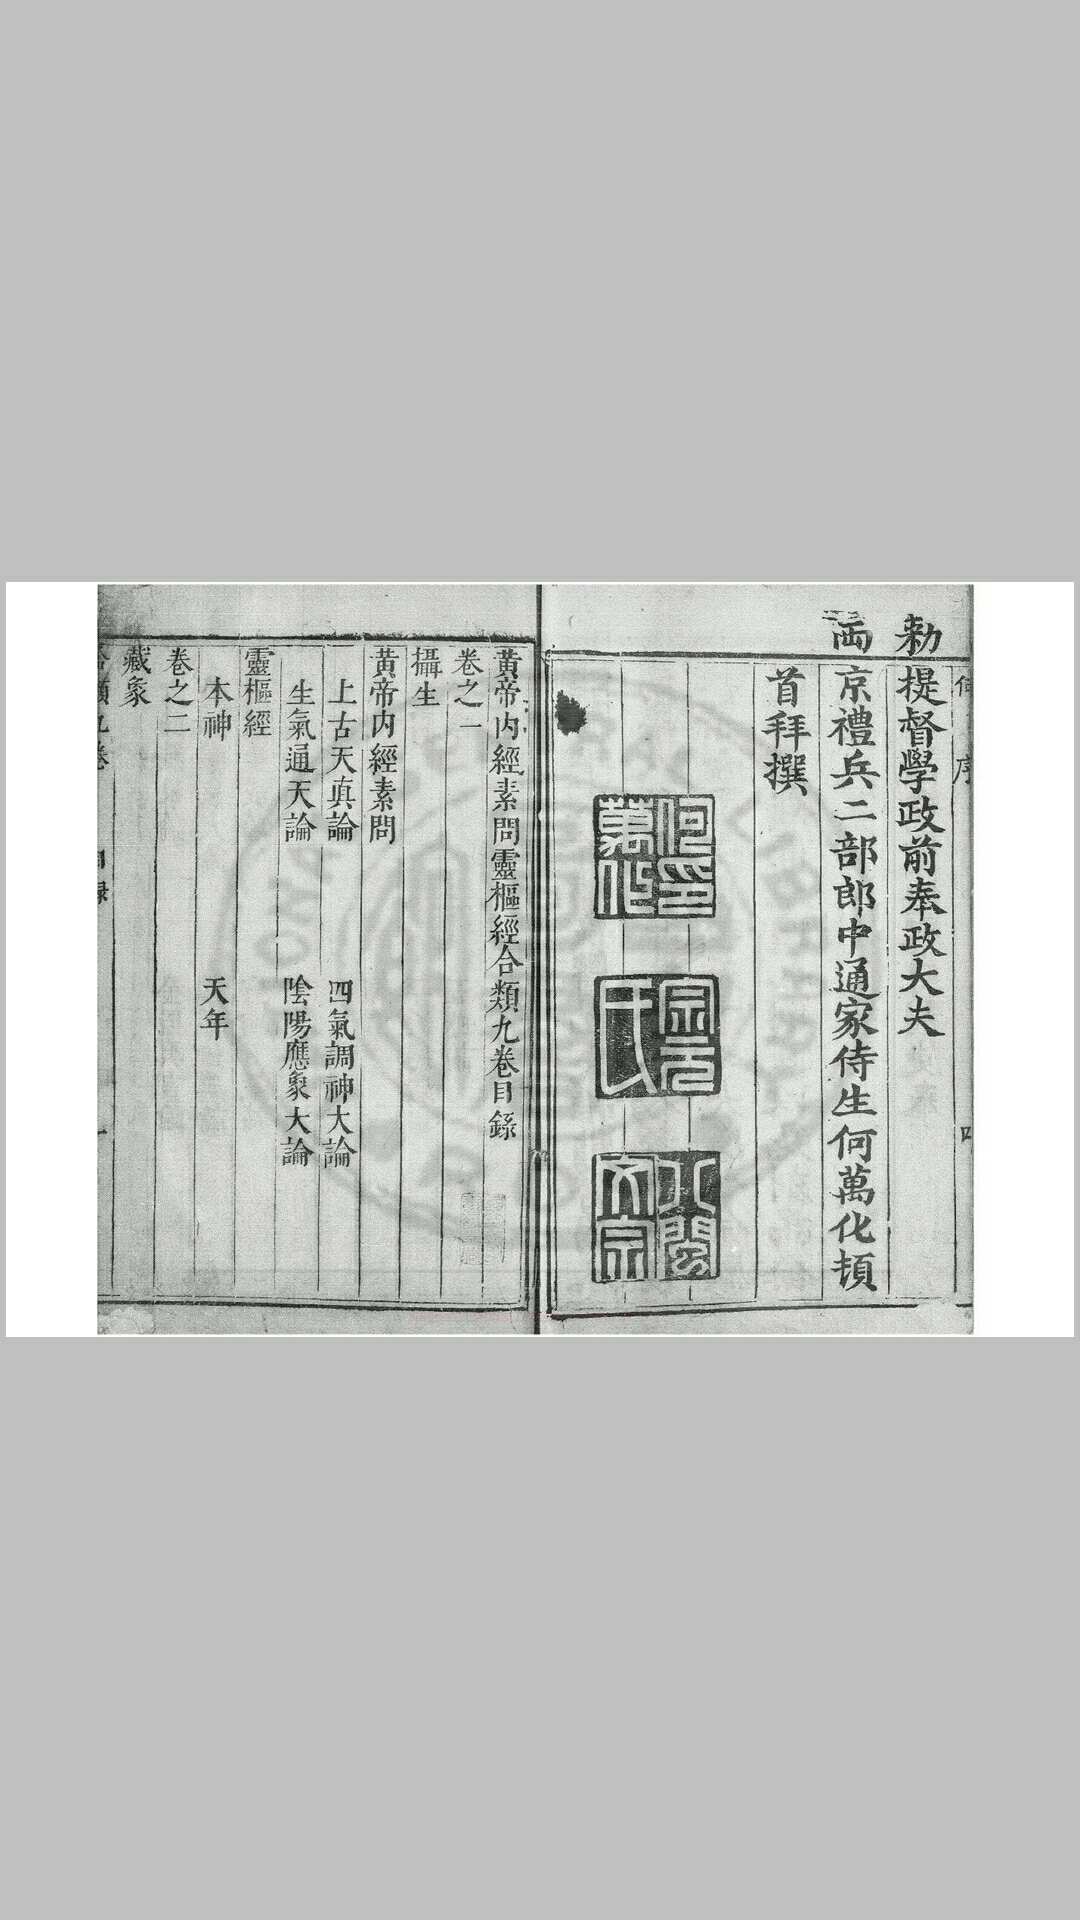 勑
提督學政前奉政大夫
兩京禮兵二部郎中通家侍生何萬化頓
首拜撰
何印萬化
宗元氏
八閩文宗
黃帝內經素問靈樞經合類九卷目錄
卷之一
攝生
黃帝內經素問
上古天真論 四氣調神大論
生氣通天論 陰陽應象大論
靈樞經
本神 天年
卷之二
藏象